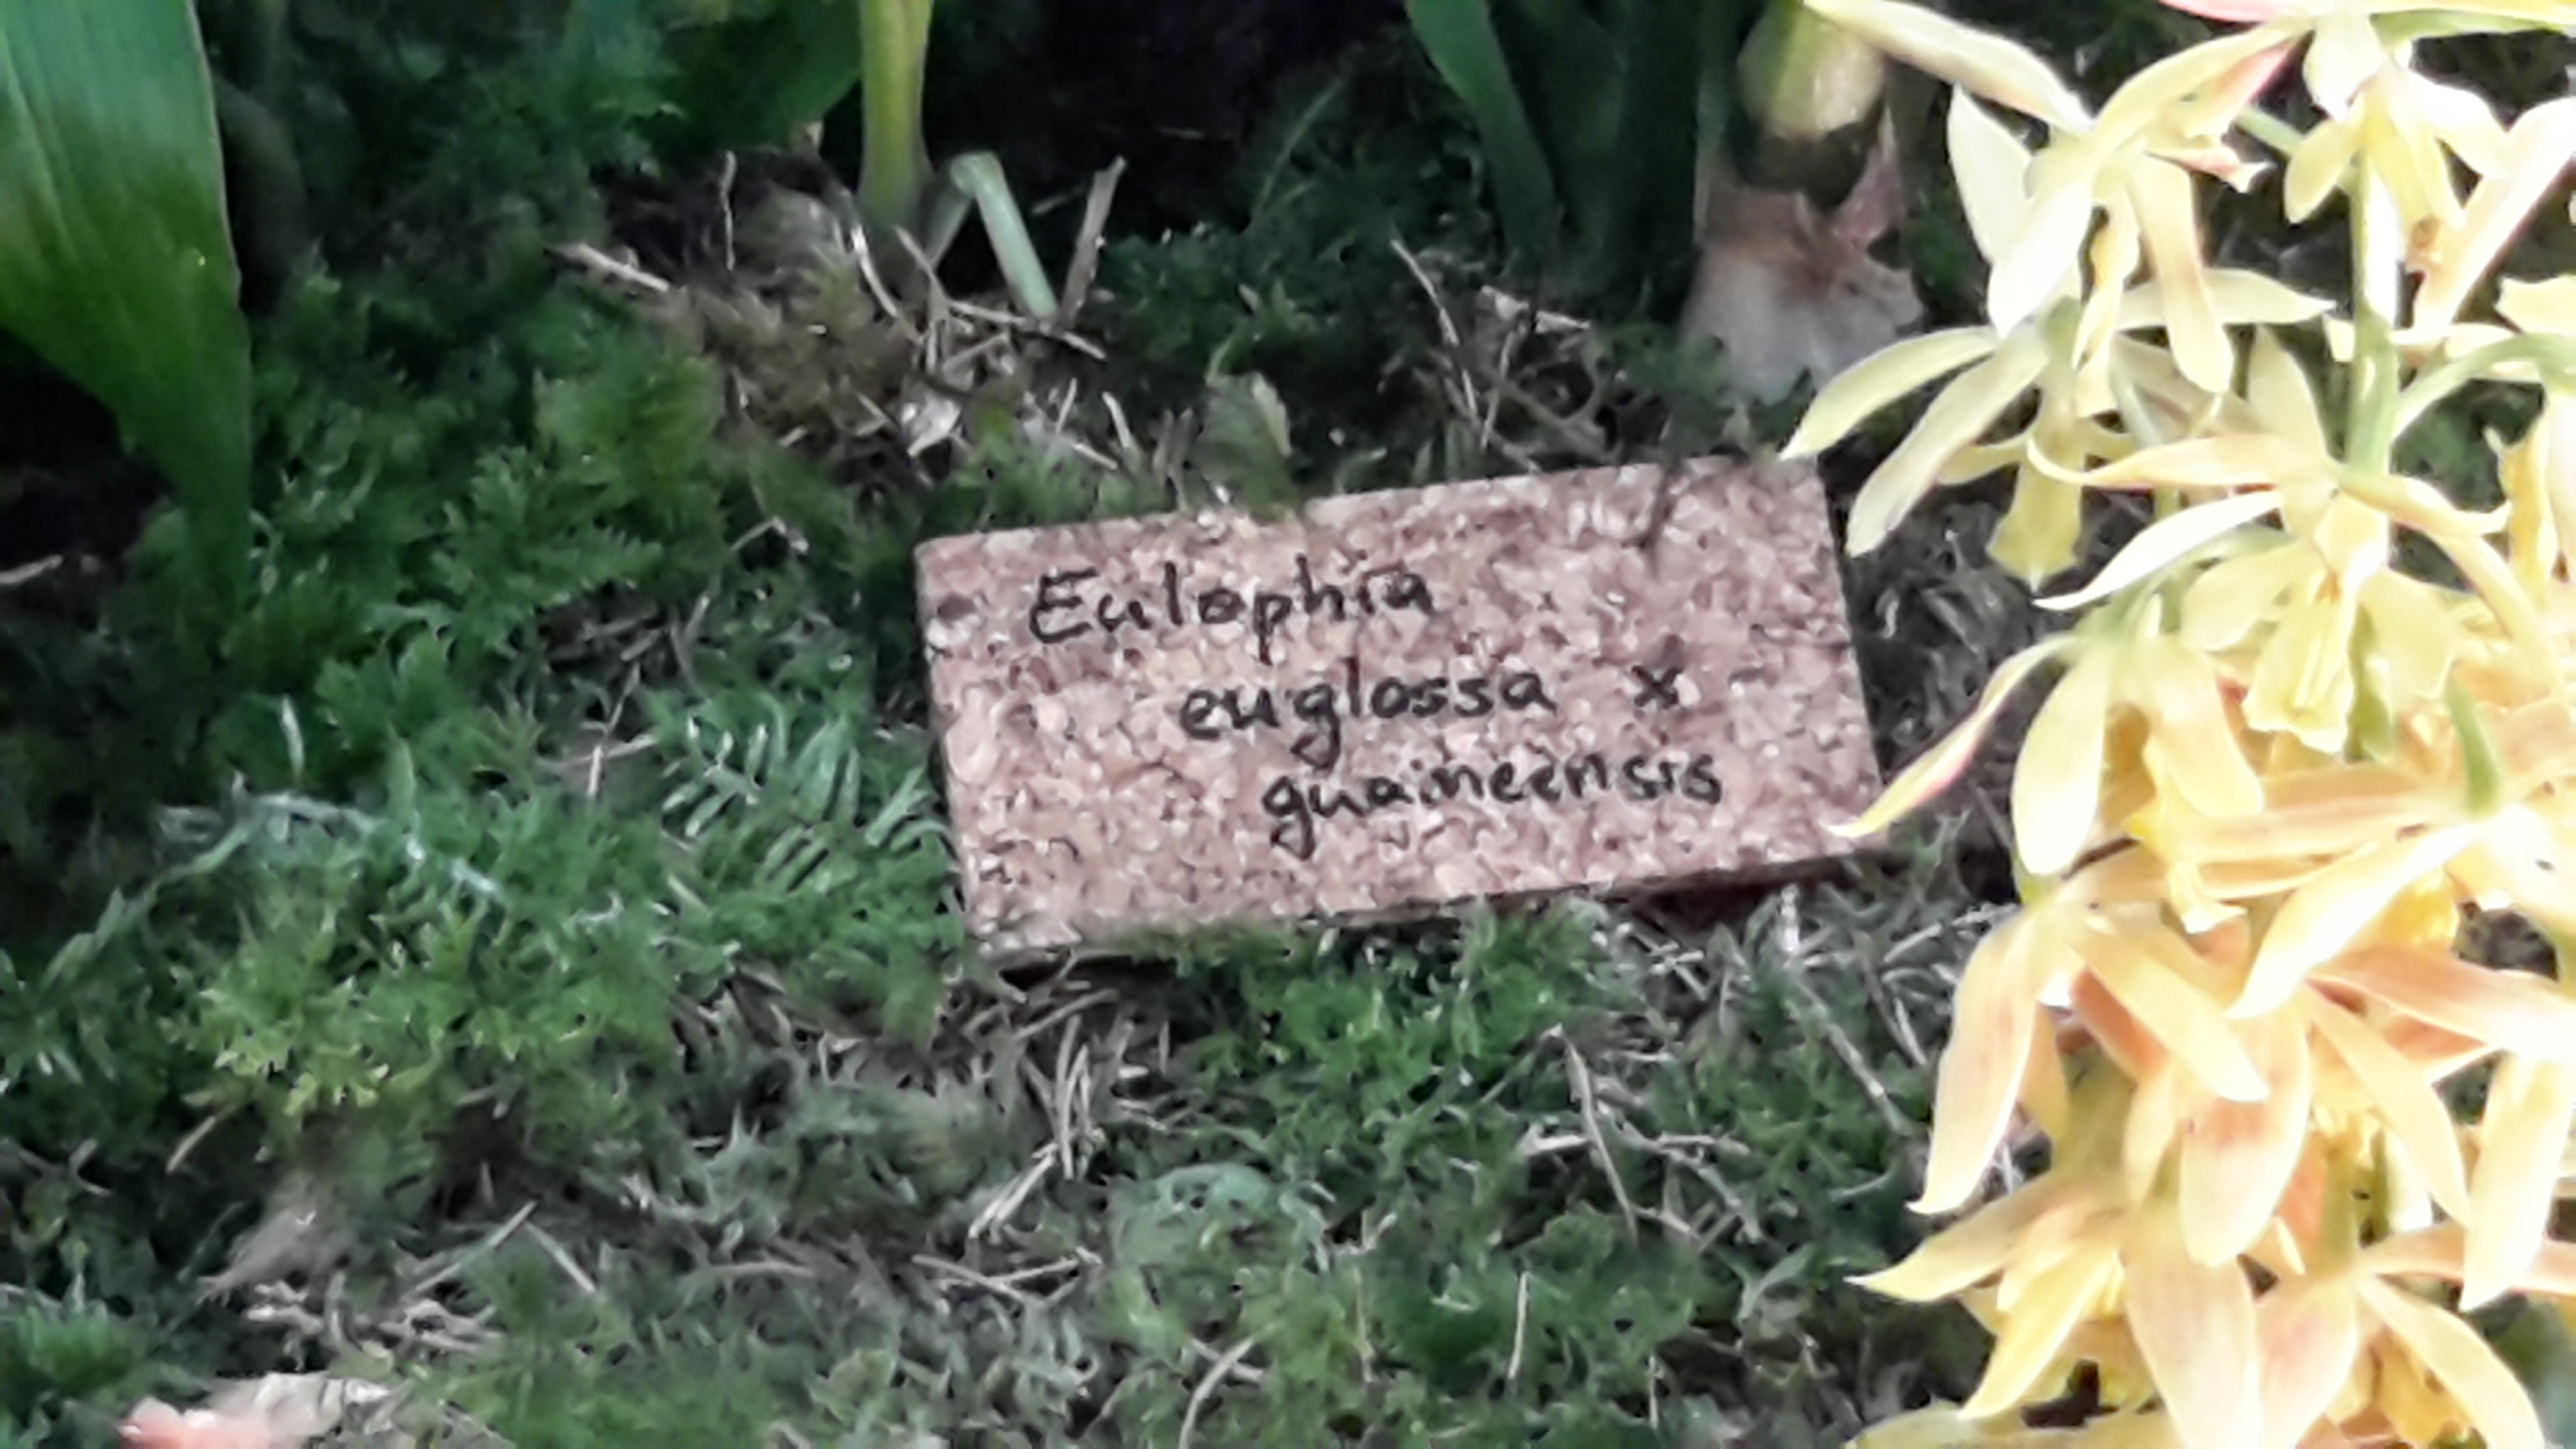 Eulophia
euglossa x
guaineensis